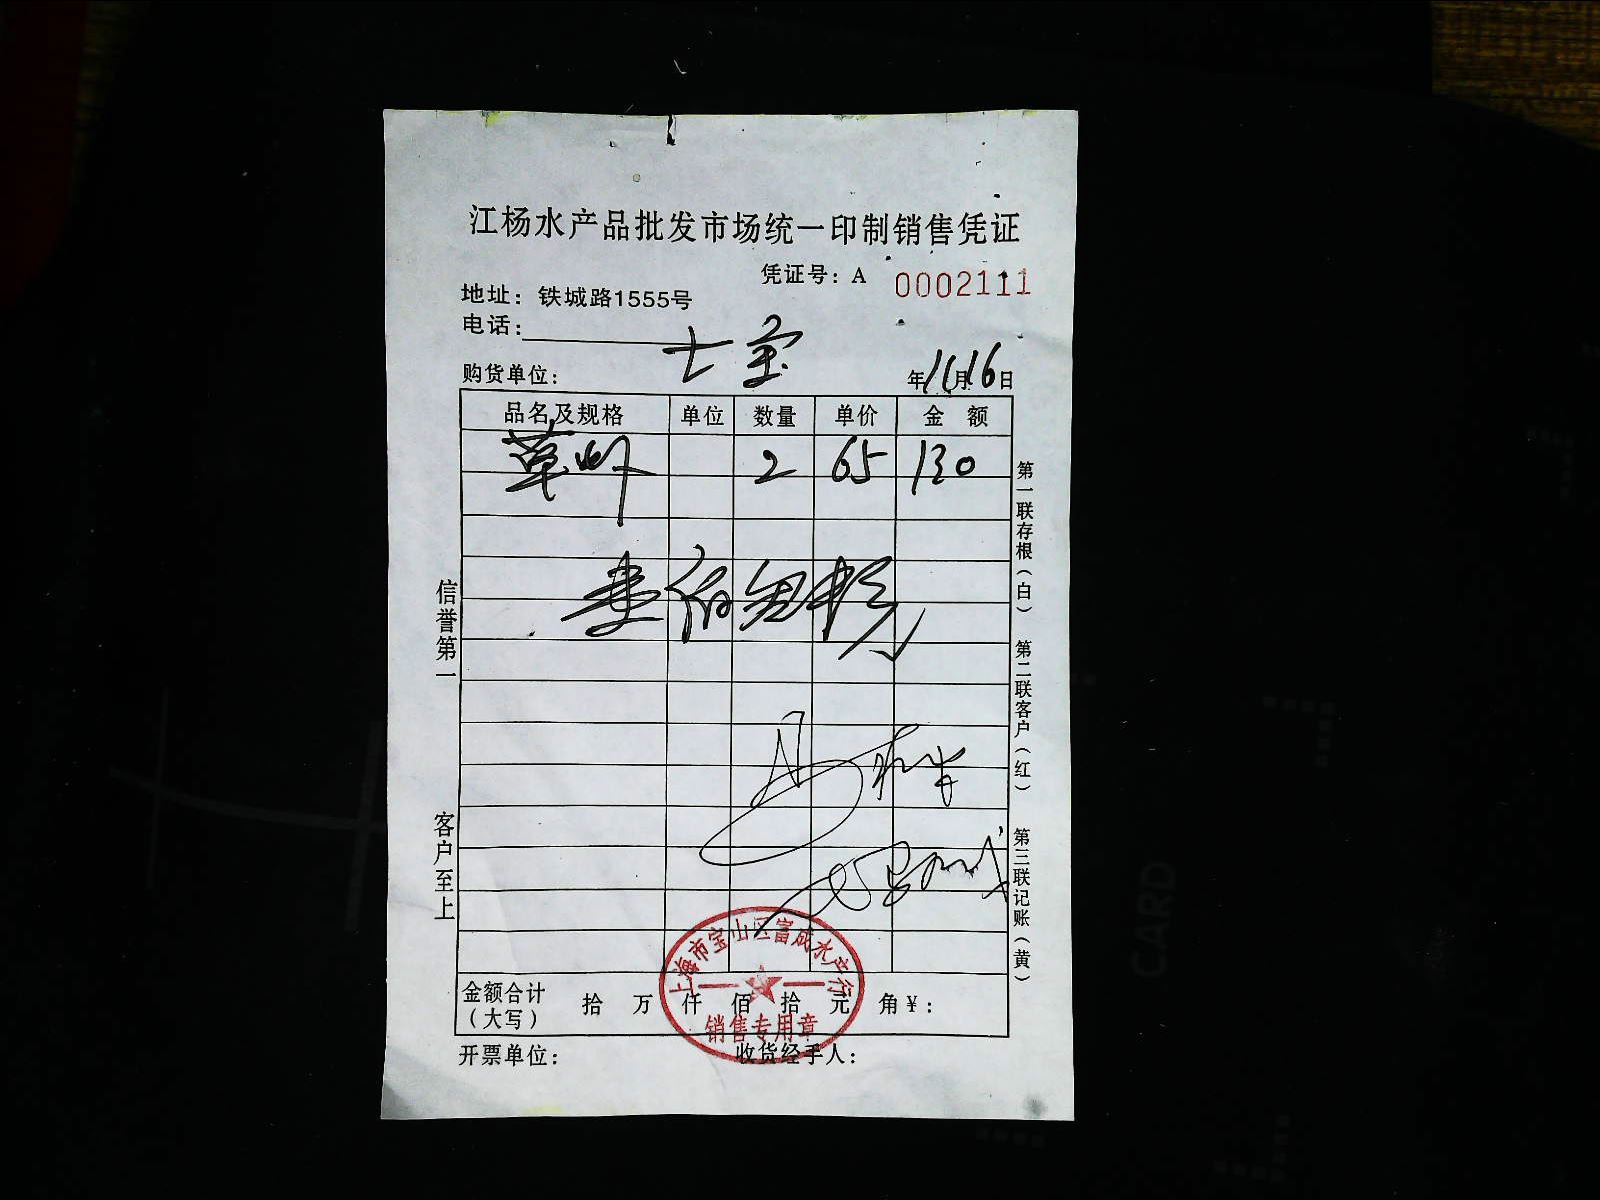 江杨水产品批发市场统一印制销售凭证
凭证号：A 0002111
地址：铁城路1555号
电话：
七宝
购货单位： 年11月16日
品名及规格 单位 数量 单价 金额
草虾 2 65 130
信誉第一
客户至上
第一联存根（白）
第二联客户（红）
第三联记账（黄）
上海市宝山区富成水产行
销售专用章
金额合计（大写） 拾 万 仟 佰 拾 元 角 ¥：
开票单位： 收货经手人：
CARD